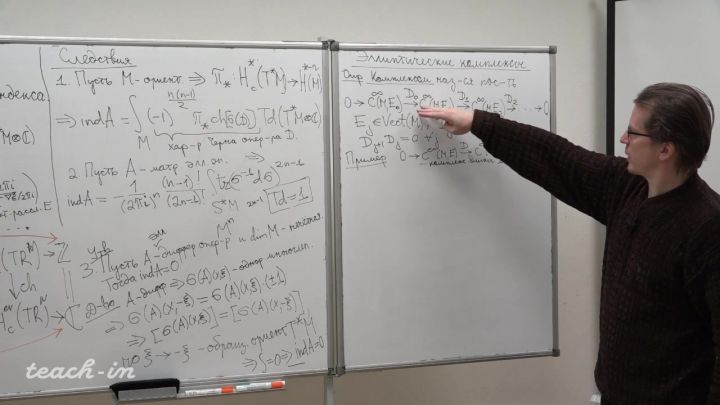 ндекса
Следствия
1. Пусть M-ориент. ⇒ π_*: H_c^*(T^*M) → H^{*-n}(M)
⇒ indA = ∫_M (-1)^{n(n-1)/2} π_* ch[σ(D)] Td(T^*M⊗ℂ)
хар-р Черна опер-ра D.
2. Пусть A - матр элл.оп. ⇒
indA = 1/(2πi)^n (n-1)!/(2n-1)! ∫_{S^*M} tr(σ^{-1}dσ)^{2n-1}
Td=1
3. Утв Пусть A-дифф элл опер-р и dim M^n - нечетная.
Тогда indA=0
Д-во. A-дифф ⇒ σ(A)(x,ξ) - однор многочлен.
⇒ σ(A)(x,-ξ) = σ(A)(x,ξ)·(±1)
⇒ [σ(A)(x,ξ)] = [σ(A)(x,-ξ)]
но ξ → -ξ - обращ. ориент T^*M
⇒ ∫=0 ⇒ indA=0
Эллиптические комплексы
Опр. Комплексом наз-ся пос-ть
0 → C^∞(M,E_0) →^{D_0} C^∞(M,E_1) →^{D_1} C^∞(M,E_2) →^{D_2} ... → 0
E_j ∈ Vect(M),
D_{j+1} D_j = 0 ∀ j
Пример 0 → C^∞(M,E) →^{D} C^∞
- комплекс длины
teach-in